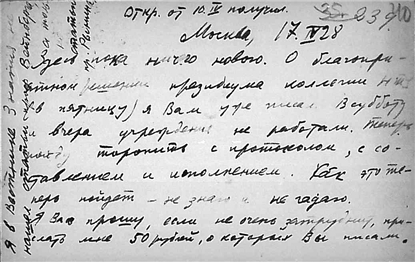 Откр. от 10.IV получил.
239
Москва, 17 IV 28
Здесь пока ничего нового. О благопри-
ятном решении президиума коллегии
(в пятницу) я Вам уже писал. В субботу
и вчера учреждения не работали. Теперь
торопить с протоколом, с со-
ставлением и исполнением. Как это те-
перь пойдет - не знаю и не гадаю.
Я Вас прошу, если не очень затрудню, при-
слать мне 50 рублей, о которых Вы писали.
Я в Вестнике Знания
нашел
статью